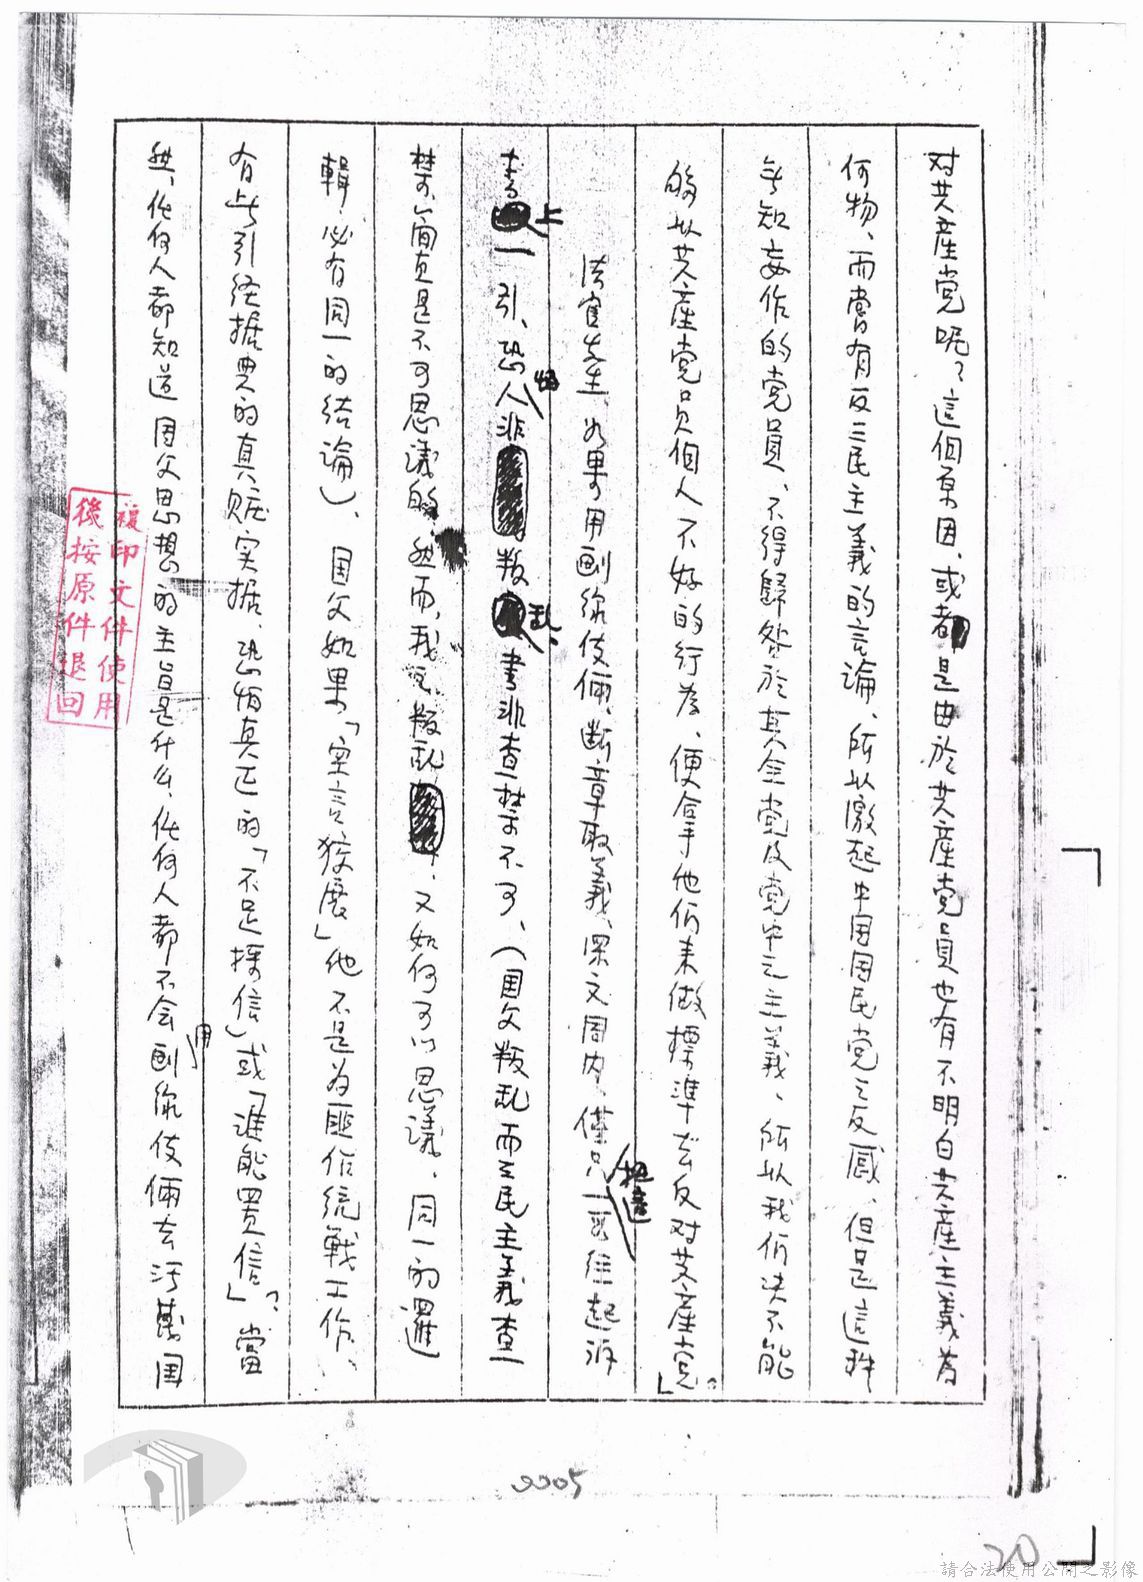 对共産党呢？這個原因、或者是由於共産党員也有不明白共産主義為
何物、而嘗有反三民主義的言論、所以激起中国国民党之反感、但是這种
无知妄作的党員、不得歸処於其全党及党中之主義、所以我们決不能
够以共産党员個人不好的行為、便拿手他们来做標準去反対共産党」。
法官先生、如果用剧缘伎倆、断章取義、深文周内、僅只一路往起訴
書上一引、恐怕人非叛乱、書非查禁不可、（国父叛乱而三民主義查
禁、簡直是不可思議的、然而、我叛乱、又如何可以思議、同一的邏
輯、必有同一的结論）、国父如果「空言狡展」他不是为匪作统戰工作、
有此引经据典的真赃实据、恐怕真正的「不足採信」或「谁能置信」？、當
然、任何人都知道国父思想的主旨是什么、任何人都不会用剧缘伎倆去污蔑国
挹意
複印文件使用
後按原件退回
0005
20
請合法使用公開之影像